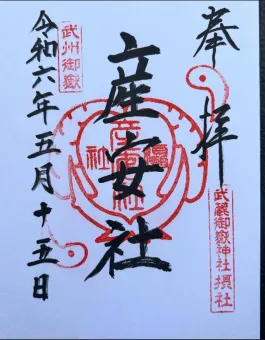 奉拝
武蔵御嶽神社摂社
産安社
産安社
武州御嶽
令和六年五月十五日